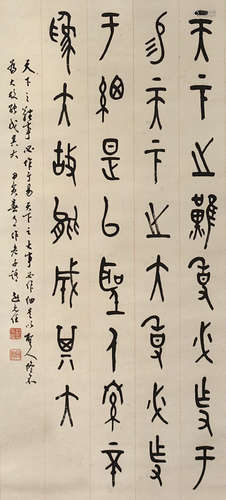 天下之難事必作于
易天下之大事必作
于細是以聖人終不
爲大故能成其大
天下之難事必作于易天下之大事必作細是以聖人終不
爲大故能成其大 甲寅春 作老子語